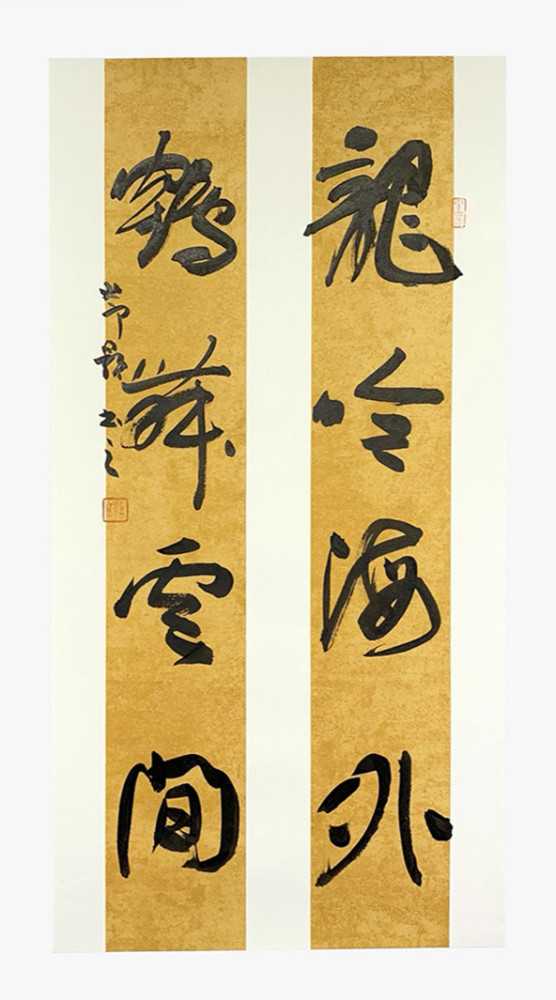 龍吟海外
鶴舞雲間